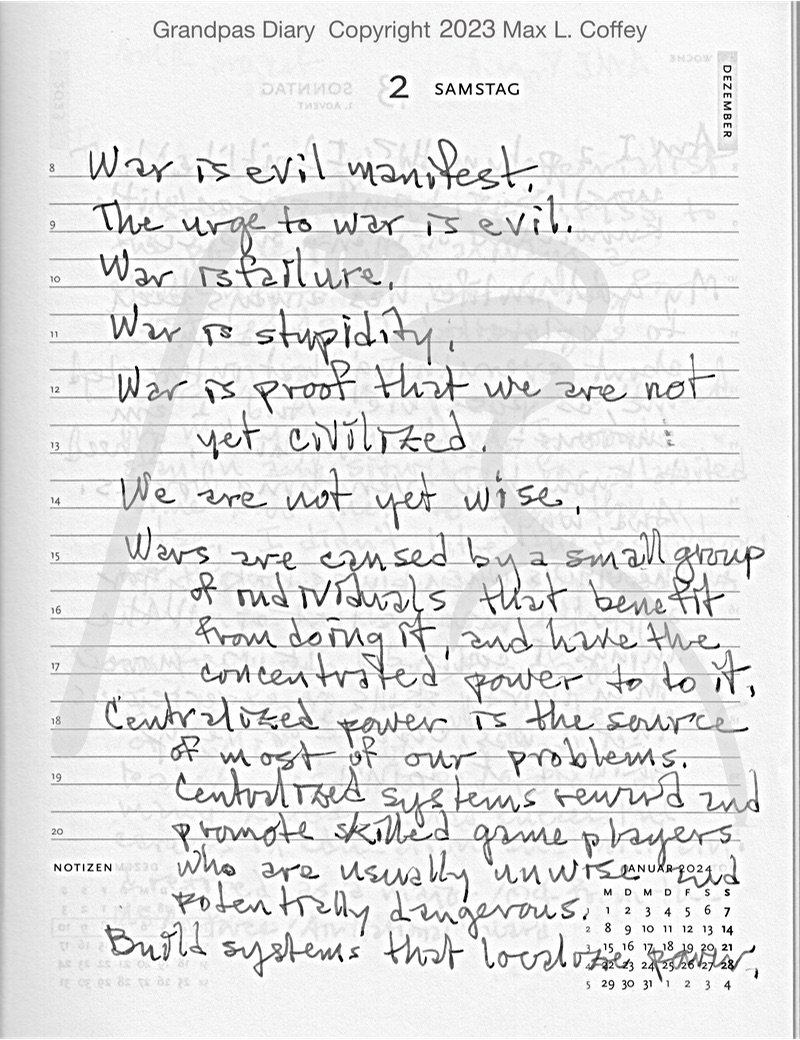 Grandpas Diary Copyright 2023 Max L. Coffey
WOCHE
2 SAMSTAG
SONNTAG
1. ADVENT
DEZEMBER
8 War is evil manifest.
9 The urge to war is evil.
10 War is failure.
11 War is stupidity.
12 War is proof that we are not
13 yet civilized.
14 We are not yet wise.
15 Wars are caused by a small group
of individuals that benefit
16 from doing it, and have the
17 concentrated power to to it.
18 Centralized power is the source
of most of our problems.
19 Centralized systems reward and
20 promote skilled game players
NOTIZEN who are usually unwise and
potentially dangerous.
Build systems that localize power.
JANUAR 2024
M D M D F S S
1 1 2 3 4 5 6 7
2 8 9 10 11 12 13 14
3 15 16 17 18 19 20 21
4 22 23 24 25 26 27 28
5 29 30 31 1 2 3 4